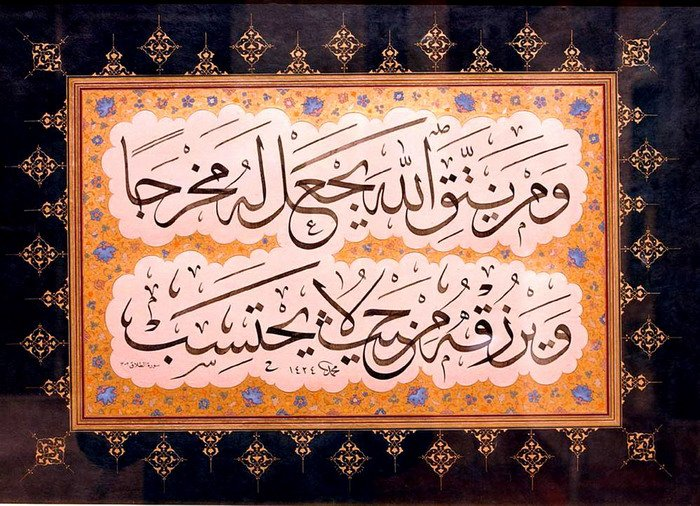 وَمَن يَتَّقِ اللهَ يَجْعَل لَهُ مَخْرَجًا
وَيَرْزُقْهُ مِنْ حَيْثُ لَا يَحْتَسِبُ
محمد ١٤٢٤
سورة الطلاق ٢-٣